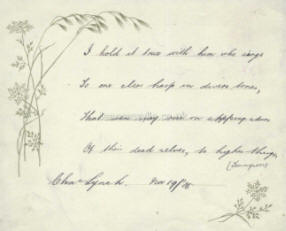 I hold it true with him who sings
To one clear harp in divers tones,
That men may rise on stepping stones
Of their dead selves, to higher things,
(Tennyson)
Chas Lynch. Nov 19/